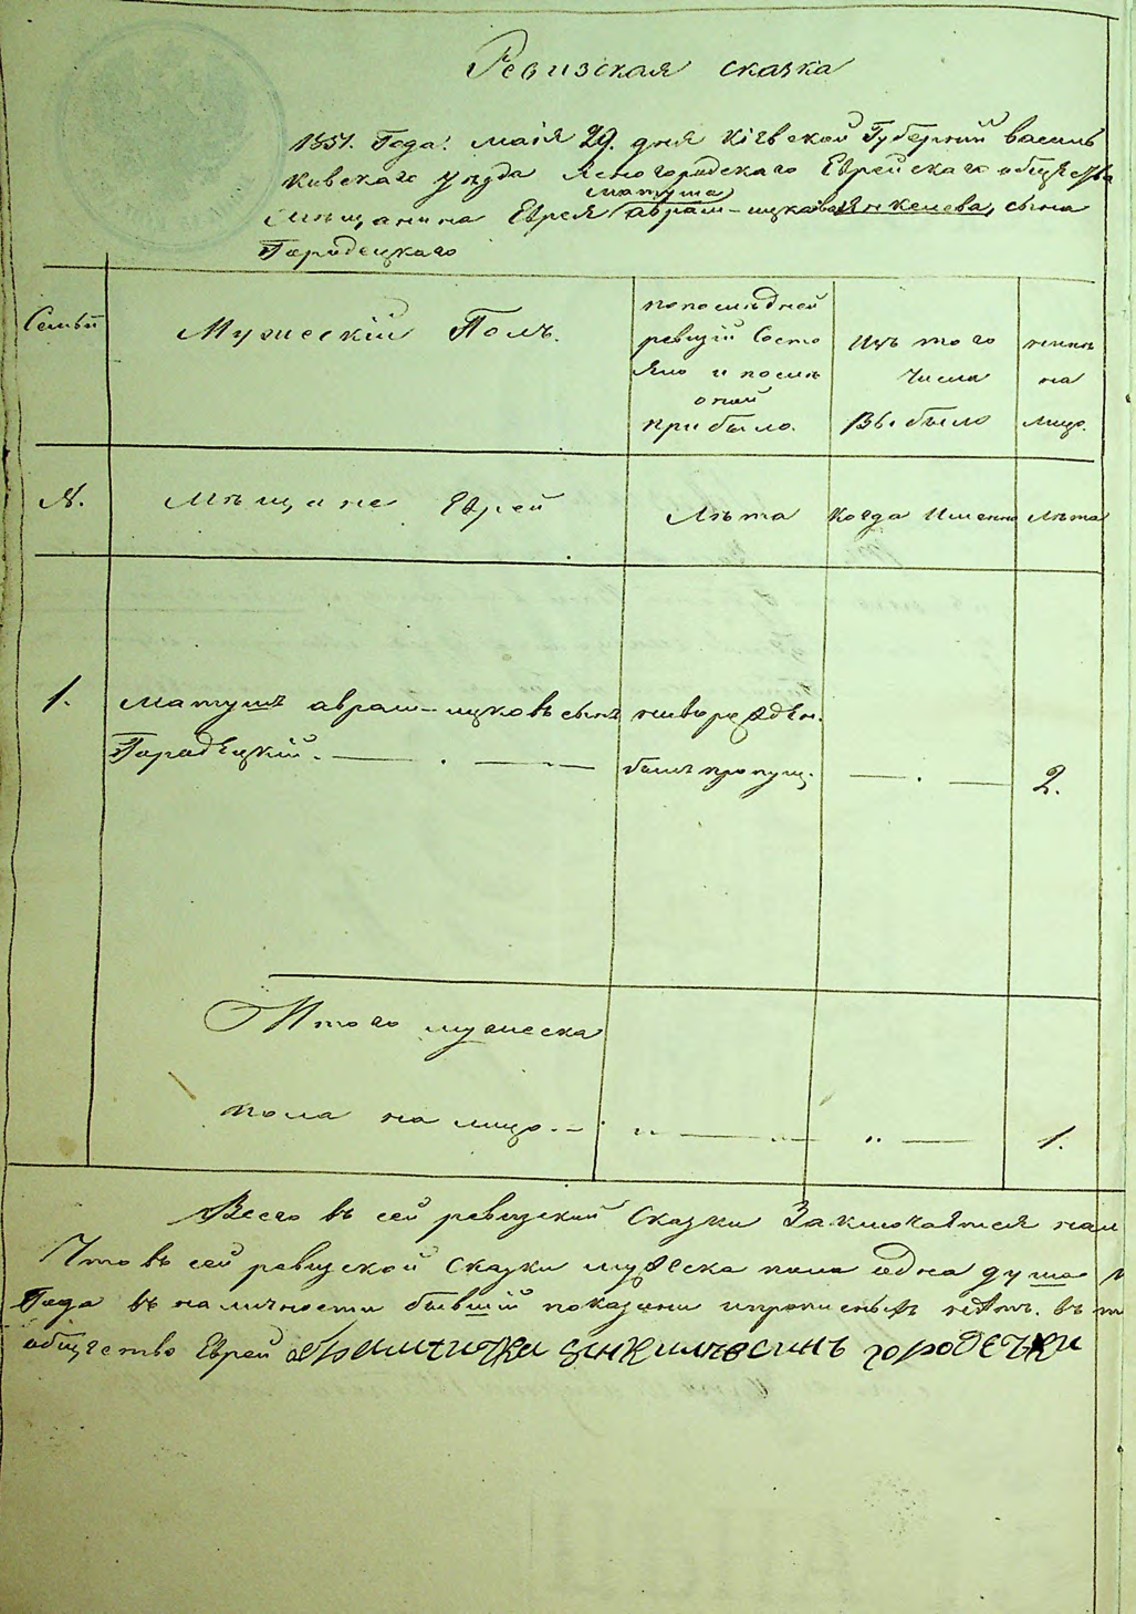 Ревизская сказка
1851. Года: маія 29. дня Кіевской Губерніи Василь
ковскаго уезда Ясногородскаго Еврейскаго общества
матуша
мещанина Еврея авраш-ицкова Янкелева, сына
Городецкаго
Семьи
Мужескій Полъ.
попоследней
ревизіи Состо
яло и после
оной
прибыло.
Изъ того
Числа
Выбыло
ныне
на
лицо.
№.
Мещане Евреи
Лета
Когда Именно
Лета
1.
Матушъ авраш-ицковъ сынъ
новорожден.
Городецкій.
былъ пропущ.
2.
Итого мужеска
пола на лицо
1.
Всего въ сей ревизской Сказки Заключается
Что въ сей ревизской Сказки мужеска пола одна душа
Года въ наличности бывшій показаны и прописныхъ нетъ. въ
общество Еврей городецки